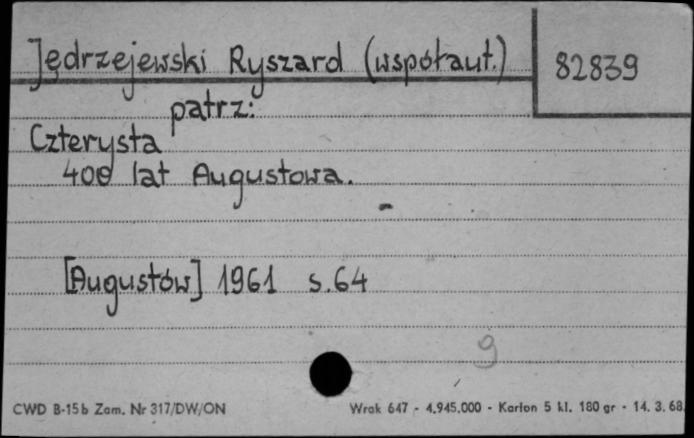 Jędrzejewski Ryszard (współaut.)
82839
patrz:
Czterysta
400 lat Augustowa.
[Augustów] 1961 s.64
9
CWD B-15b Zam. Nr 317/DW/ON
Wrak 647 - 4.945.000 - Karton 5 kl. 180 gr - 14. 3. 68.